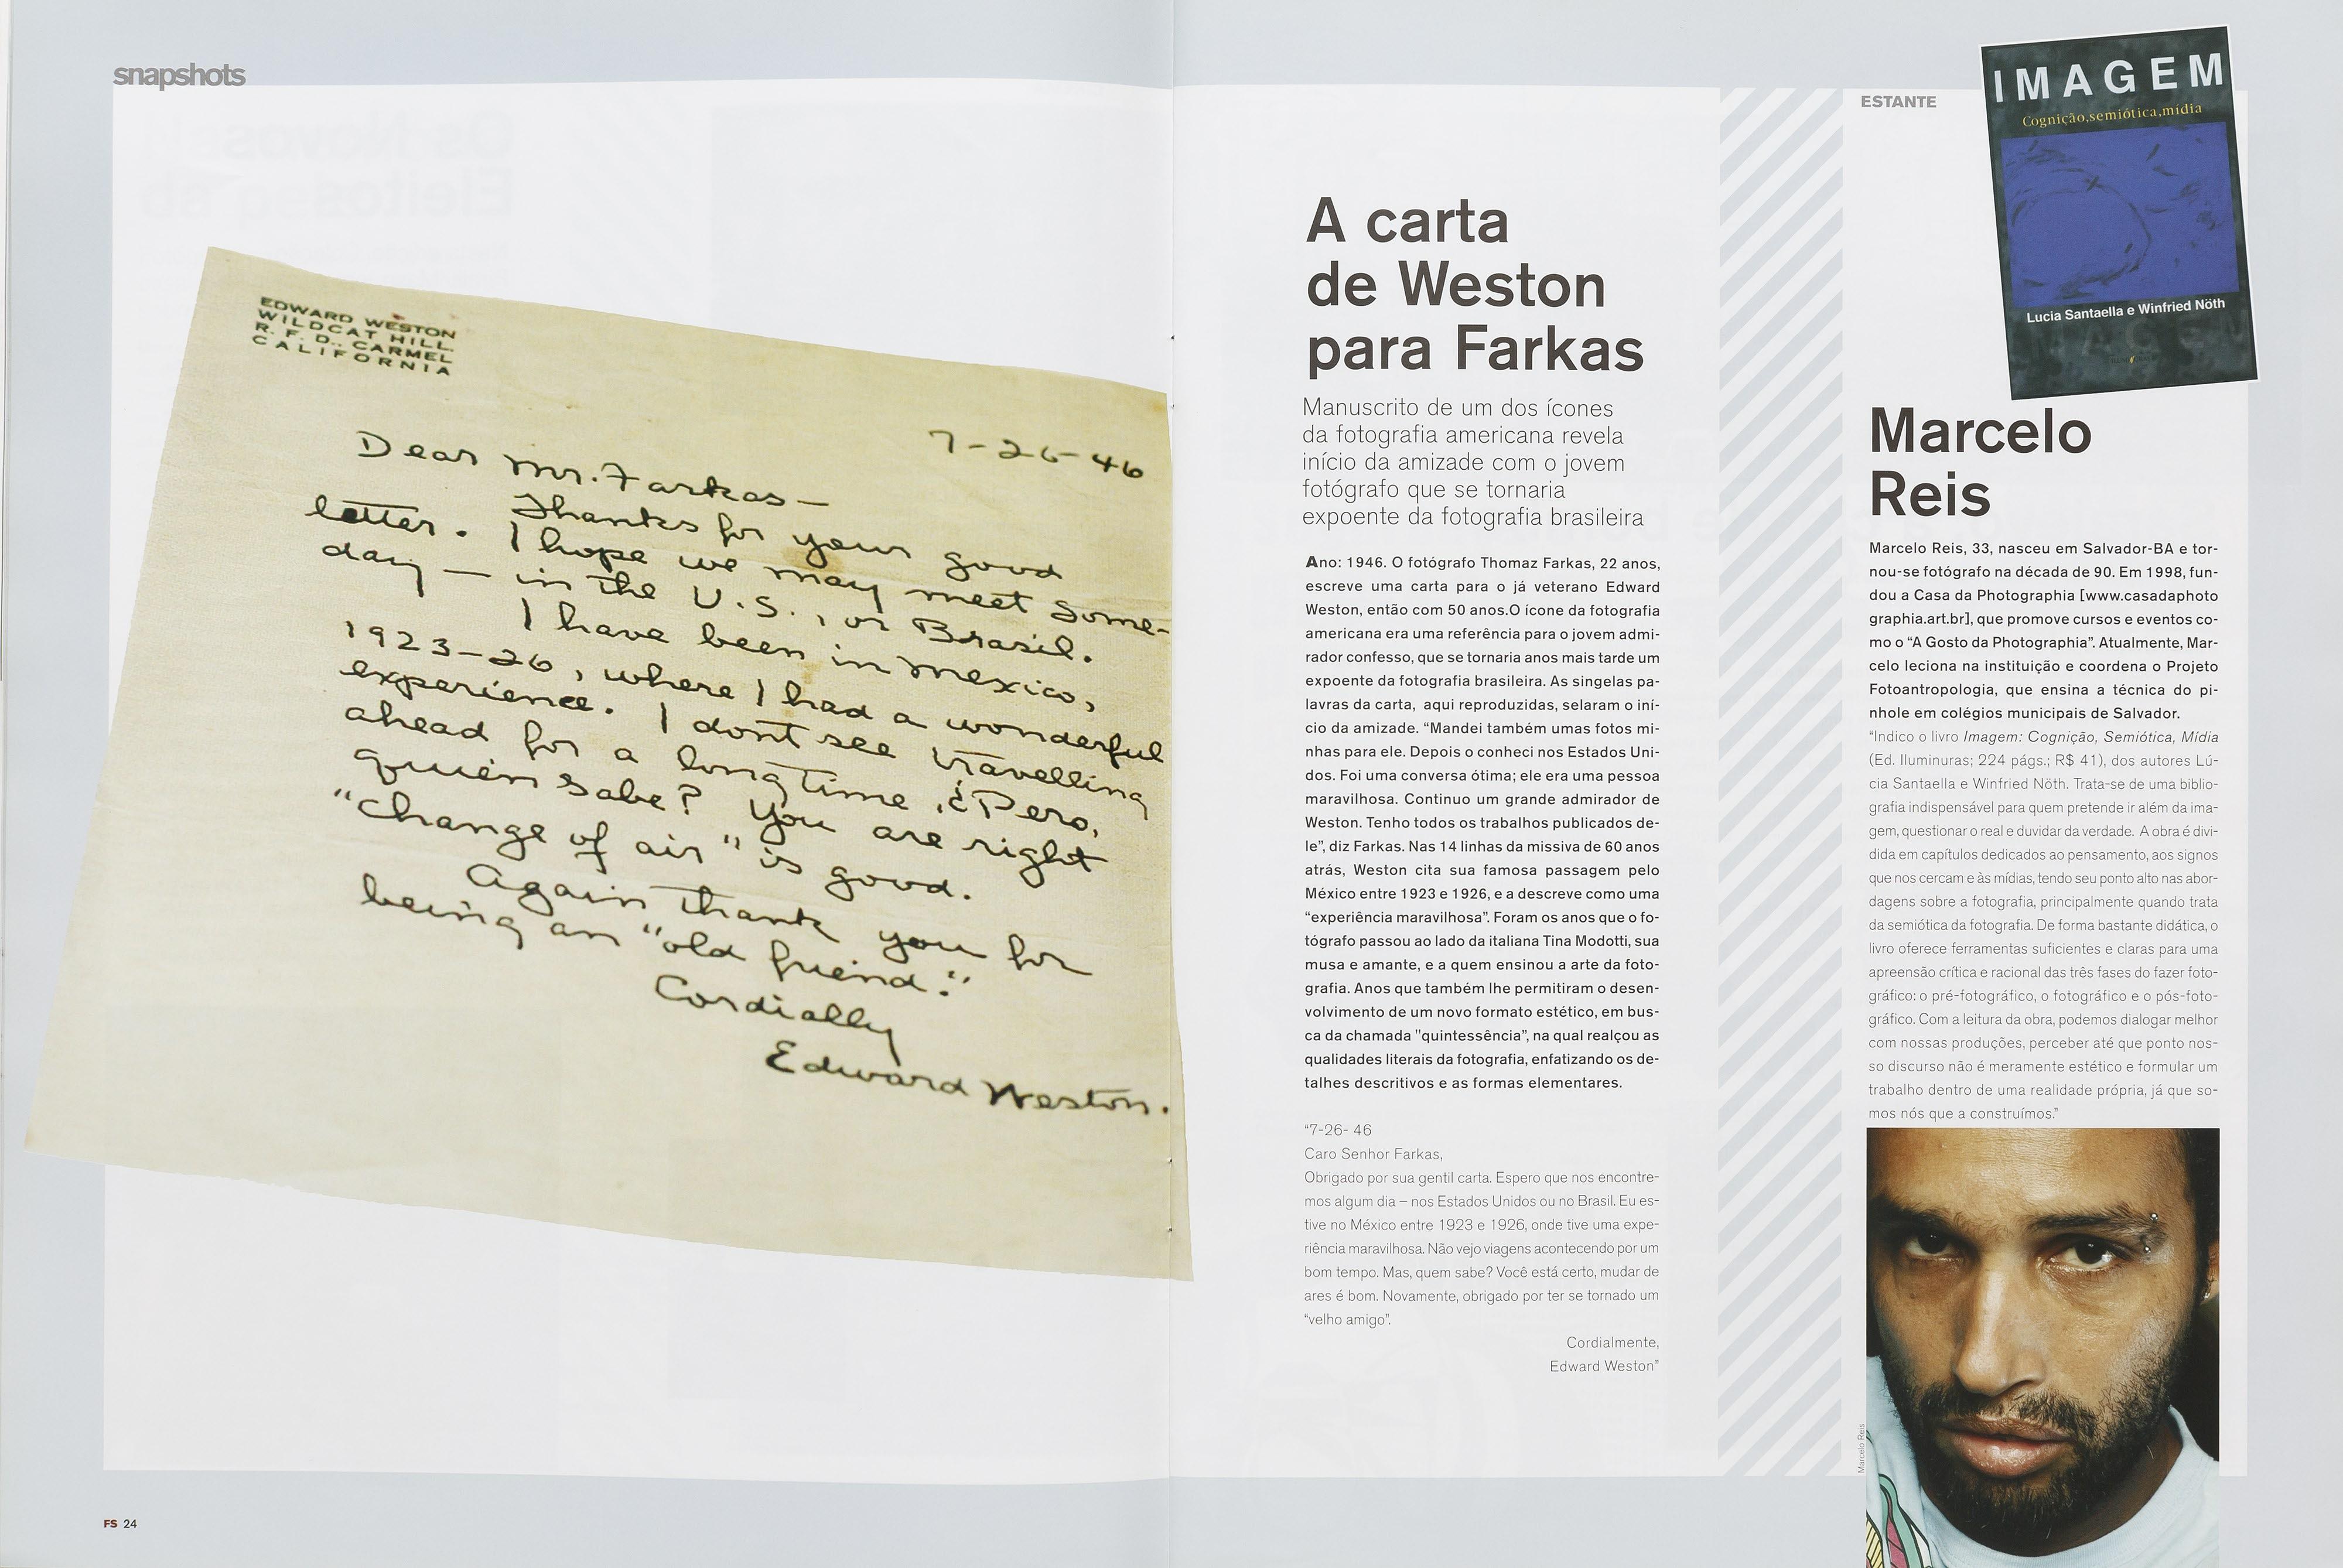 snapshots
EDWARD WESTON
WILDCAT HILL.
R. F. D., CARMEL
CALIFORNIA
7-26-46
Dear Mr. Farkas—
Thanks for your good
letter. I hope we may meet some-
day — in the U.S., or Brasil.
I have been in Mexico,
1923-26, where I had a wonderful
experience. I don't see travelling
ahead for a long time. ¿Pero,
quien sabe? You are right
"change of air" is good.
Again thank you for
being an "old friend."
Cordially
Edward Weston.
FS 24
A carta
de Weston
para Farkas
Manuscrito de um dos ícones
da fotografia americana revela
início da amizade com o jovem
fotógrafo que se tornaria
expoente da fotografia brasileira
Ano: 1946. O fotógrafo Thomaz Farkas, 22 anos,
escreve uma carta para o já veterano Edward
Weston, então com 50 anos.O ícone da fotografia
americana era uma referência para o jovem admi-
rador confesso, que se tornaria anos mais tarde um
expoente da fotografia brasileira. As singelas pa-
lavras da carta, aqui reproduzidas, selaram o iní-
cio da amizade. “Mandei também umas fotos mi-
nhas para ele. Depois o conheci nos Estados Uni-
dos. Foi uma conversa ótima; ele era uma pessoa
maravilhosa. Continuo um grande admirador de
Weston. Tenho todos os trabalhos publicados de-
le”, diz Farkas. Nas 14 linhas da missiva de 60 anos
atrás, Weston cita sua famosa passagem pelo
México entre 1923 e 1926, e a descreve como uma
“experiência maravilhosa”. Foram os anos que o fo-
tógrafo passou ao lado da italiana Tina Modotti, sua
musa e amante, e a quem ensinou a arte da foto-
grafia. Anos que também lhe permitiram o desen-
volvimento de um novo formato estético, em bus-
ca da chamada "quintessência”, na qual realçou as
qualidades literais da fotografia, enfatizando os de-
talhes descritivos e as formas elementares.
“7-26- 46
Caro Senhor Farkas,
Obrigado por sua gentil carta. Espero que nos encontre-
mos algum dia – nos Estados Unidos ou no Brasil. Eu es-
tive no México entre 1923 e 1926, onde tive uma expe-
riência maravilhosa. Não vejo viagens acontecendo por um
bom tempo. Mas, quem sabe? Você está certo, mudar de
ares é bom. Novamente, obrigado por ter se tornado um
“velho amigo”.
Cordialmente,
Edward Weston”
ESTANTE
IMAGEM
Cognição,semiótica,mídia
Lucia Santaella e Winfried Nöth
Marcelo
Reis
Marcelo Reis, 33, nasceu em Salvador-BA e tor-
nou-se fotógrafo na década de 90. Em 1998, fun-
dou a Casa da Photographia [www.casadaphoto
graphia.art.br], que promove cursos e eventos co-
mo o “A Gosto da Photographia”. Atualmente, Mar-
celo leciona na instituição e coordena o Projeto
Fotoantropologia, que ensina a técnica do pi-
nhole em colégios municipais de Salvador.
“Indico o livro Imagem: Cognição, Semiótica, Mídia
(Ed. Iluminuras; 224 págs.; R$ 41), dos autores Lú-
cia Santaella e Winfried Nöth. Trata-se de uma biblio-
grafia indispensável para quem pretende ir além da ima-
gem, questionar o real e duvidar da verdade. A obra é divi-
dida em capítulos dedicados ao pensamento, aos signos
que nos cercam e às mídias, tendo seu ponto alto nas abor-
dagens sobre a fotografia, principalmente quando trata
da semiótica da fotografia. De forma bastante didática, o
livro oferece ferramentas suficientes e claras para uma
apreensão crítica e racional das três fases do fazer foto-
gráfico: o pré-fotográfico, o fotográfico e o pós-foto-
gráfico. Com a leitura da obra, podemos dialogar melhor
com nossas produções, perceber até que ponto nos-
so discurso não é meramente estético e formular um
trabalho dentro de uma realidade própria, já que so-
mos nós que a construímos.”
Marcelo Reis